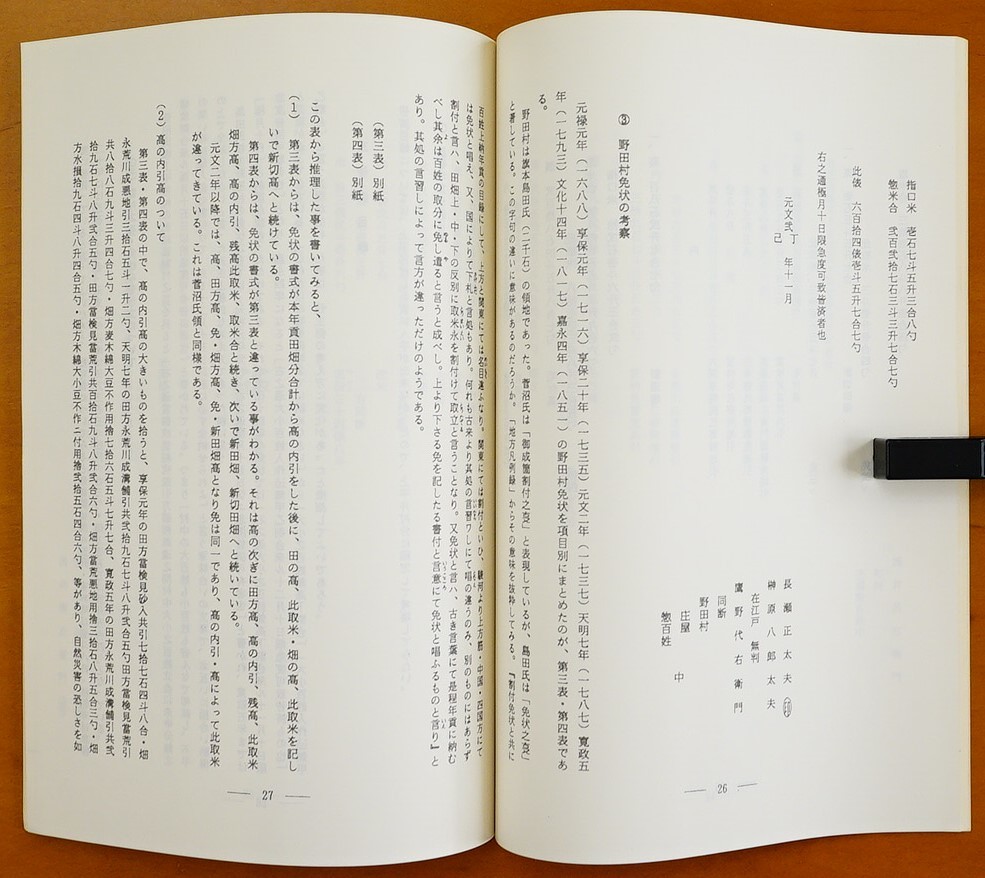 指口米　壱石七斗五升三合八勺
惣米合　弐百弐拾七石三斗三升七合七勺
此俵　六百拾四俵壱斗五升七合七勺
右之通極月十日限急度可致皆済者也
元文弐 丁巳 年十一月
長瀬正太夫 ㊞
榊原八郎太夫
在江戸　無判
鷹野代右衛門
同断
野田村
庄屋　中
惣百姓
③　野田村免状の考察
元禄元年（一六八八）享保元年（一七一六）享保二十年（一七三五）元文二年（一七三七）天明七年（一七八七）寛政五
年（一七九三）文化十四年（一八一七）嘉永四年（一八五一）の野田村免状を項目別にまとめたのが、第三表・第四表であ
る。
野田村は旗本島田氏（二千石）の領地であった。菅沼氏は「御成箇割付之㕝」と表現しているが、島田氏は「免状之㕝」
と著している。この字句の違いに意味があるのだろうか。「地方凡例録」からその意味を抜粋してみる。『割付免状と共に
― 26 ―
百姓上納年貢の目録にして、上方と関東にては名目違ふなり。関東にては割付といひ、駿河より上方筋・中国・四国方にて
は免状と唱え、又、国によりて下札と言処もあり。何れも古来より其処の言習ワしにて唱の違うのみ、別のものにはあらず
割付と言ハ、田畑上・中・下の反別に取米永を割付けて取立と言うことなり。又免状と言ハ、古き言葉にて是程年貢に納む
べし其余は百姓の取分に免し遣ると言う事と成べし。上より下さる免を記したる書付と言意にて免状と唱ふるものと言り』と
あり。其処の言習しによって言方が違っただけのようである。
（第三表）別紙
（第四表）別紙
この表から推理した事を書いてみると、
（１）　第三表からは、免状の書式が本年貢田畑分合計から高の内引をした後に、田の高、此取米・畑の高、此取米を記し
いで新切高へと続けている。
第四表からは、免状の書式が第三表と違っている事がわかる。それは高の次ぎに田方高、高の内引、残高、此取米
畑方高、高の内引、残高此取米、取米合と続き、次いで新田畑、新切田畑へと続いている。
元文二年以降では、高、田方高、免・畑方高、免・新田畑高となり免は同一であり、高の内引・高によって此取米
が違ってきている。これは菅沼氏領と同様である。
（２）高の内引高のついて
第三表・第四表の中で、高の内引高の大きいものを拾うと、享保元年の田方當検見砂入共引七拾七石四斗八合・畑
永荒川成悪地引三拾石五斗一升二勺、天明七年の田方永荒川成溝舗引共弐拾九石七斗八升弐合五勺田方當検見當荒引
共八拾八石九斗三升四合七勺・畑方麦木綿大豆不作用捨七拾六石五斗七升七合、寛政五年の田方永荒川成溝舗引共弐
拾九石七斗八升弐合五勺・田方當検見當荒引共百拾石九斗八升弐合六勺・畑方當荒悪地用捨三拾石八升五合三勺・畑
方水損拾九石四斗八升四合五勺・畑方木綿大小豆不作ニ付用捨弐拾五石四合六勺、等があり、自然災害の恐しさを如
― 27 ―